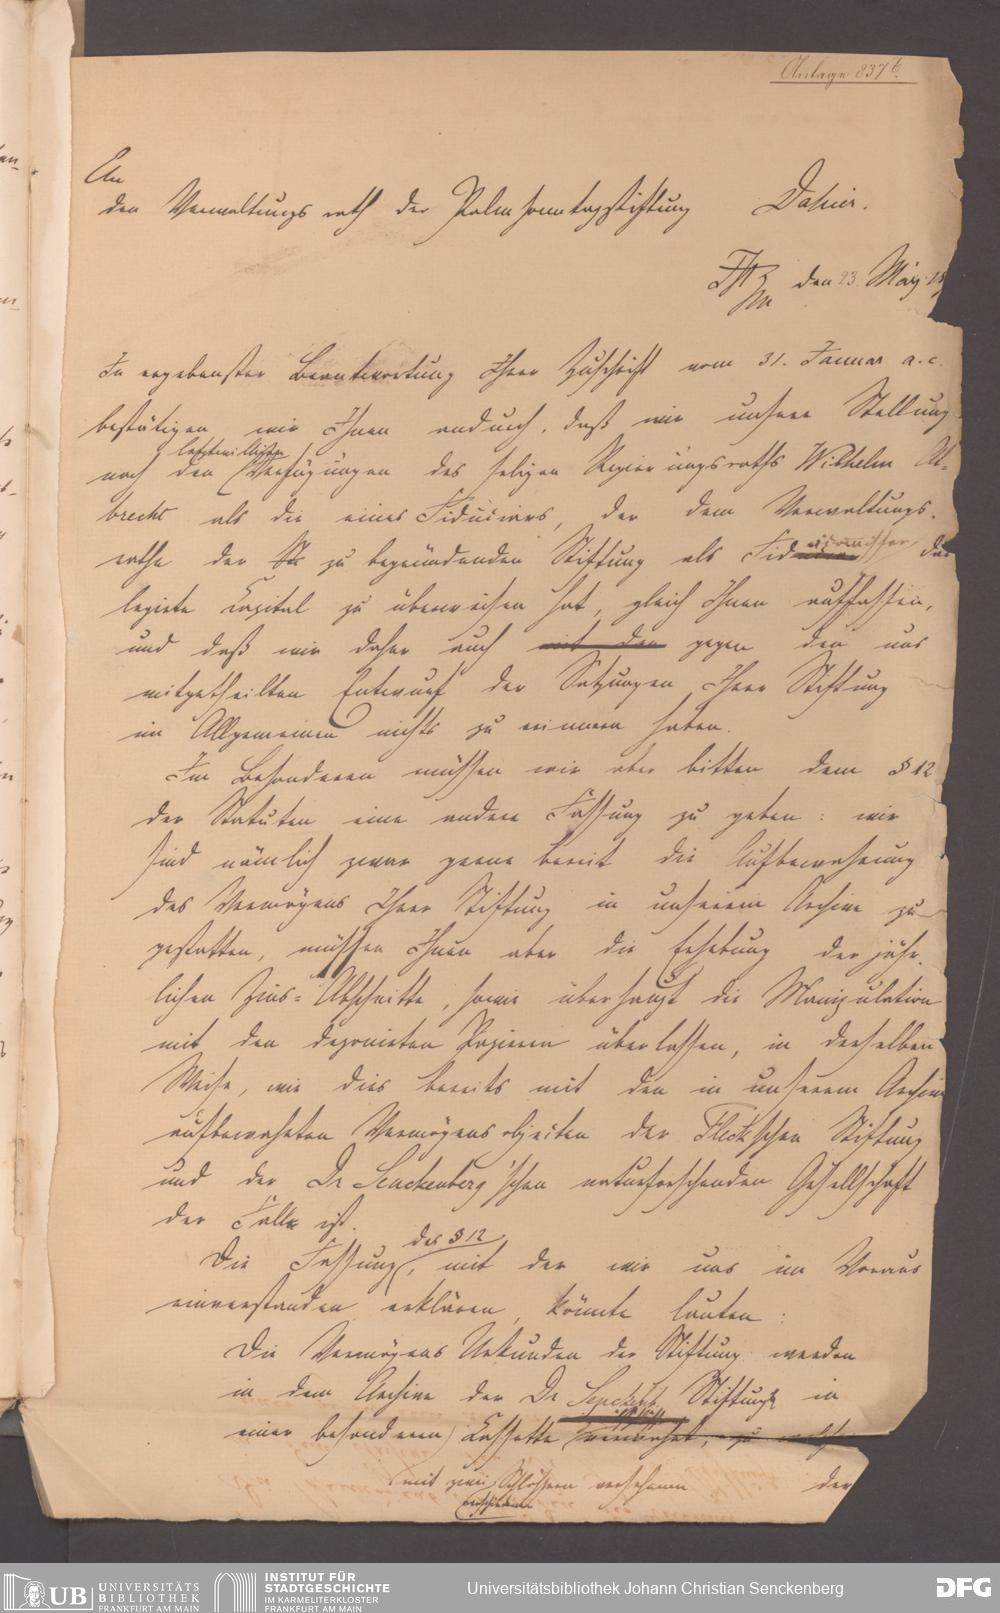 Anlage 837 b.
An
den Verwaltungsrath der Palmsonntagstiftung Dahier.
den 23. März 18
In ergebenster Beantwortung Ihrer Zuschrift vom 31. Januar a. c.
bestätigen wir Ihnen andurch, daß wir unsere Stellung
letztwilligen
nach den Verfügungen des seligen Regierungsraths Wilhelm Al-
brecht als die eines Fiduciars, der dem Verwaltungs-
rathe der St zu begründenden Stiftung als das
legirte Capital zu überweisen hat, gleich Ihnen auffassen,
und daß wir daher auch mit den gegen den uns
mitgetheilten Entwurf der Satzungen Ihrer Stiftung
im Allgemeinen nichts zu erinnern haben.
Im Besonderen müssen wir aber bitten dem § 12
der Statuten eine andere Fassung zu geben: wir
sind nämlich zwar gerne bereit die Aufbewahrung
des Vermögens Ihrer Stiftung in unserem Archive zu
gestatten, müssen Ihnen aber die Erhebung der jähr-
lichen Zins-Abschnitte, sowie überhaupt die Manipulation
mit den deponirten Papieren überlassen, in derselben
Weise, wie dies bereits mit den in unserem Archive
aufbewahrten Vermögensobjecten der Fleck'schen Stiftung
und der Dr Senckenberg'schen naturforschenden Gesellschaft
der Fall ist.
des § 12
Die Fassung, mit der wir uns im Voraus
einverstanden erklären, könnte lauten:
Die Vermögens Urkunden der Stiftung werden
in dem Archive der Dr Senckenb. Stiftung in
einer besonderen Cassette verwahrt, zu welcher
mit zwei Schlössern versehenen der
verschiedenen
UB UNIVERSITÄTS
BIBLIOTHEK
FRANKFURT AM MAIN
INSTITUT FÜR
STADTGESCHICHTE
IM KARMELITERKLOSTER
FRANKFURT AM MAIN
Universitätsbibliothek Johann Christian Senckenberg
DFG